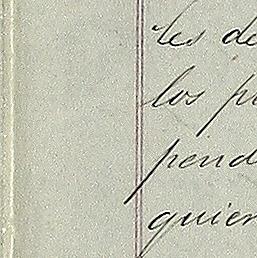 les de
los p
pend
quien